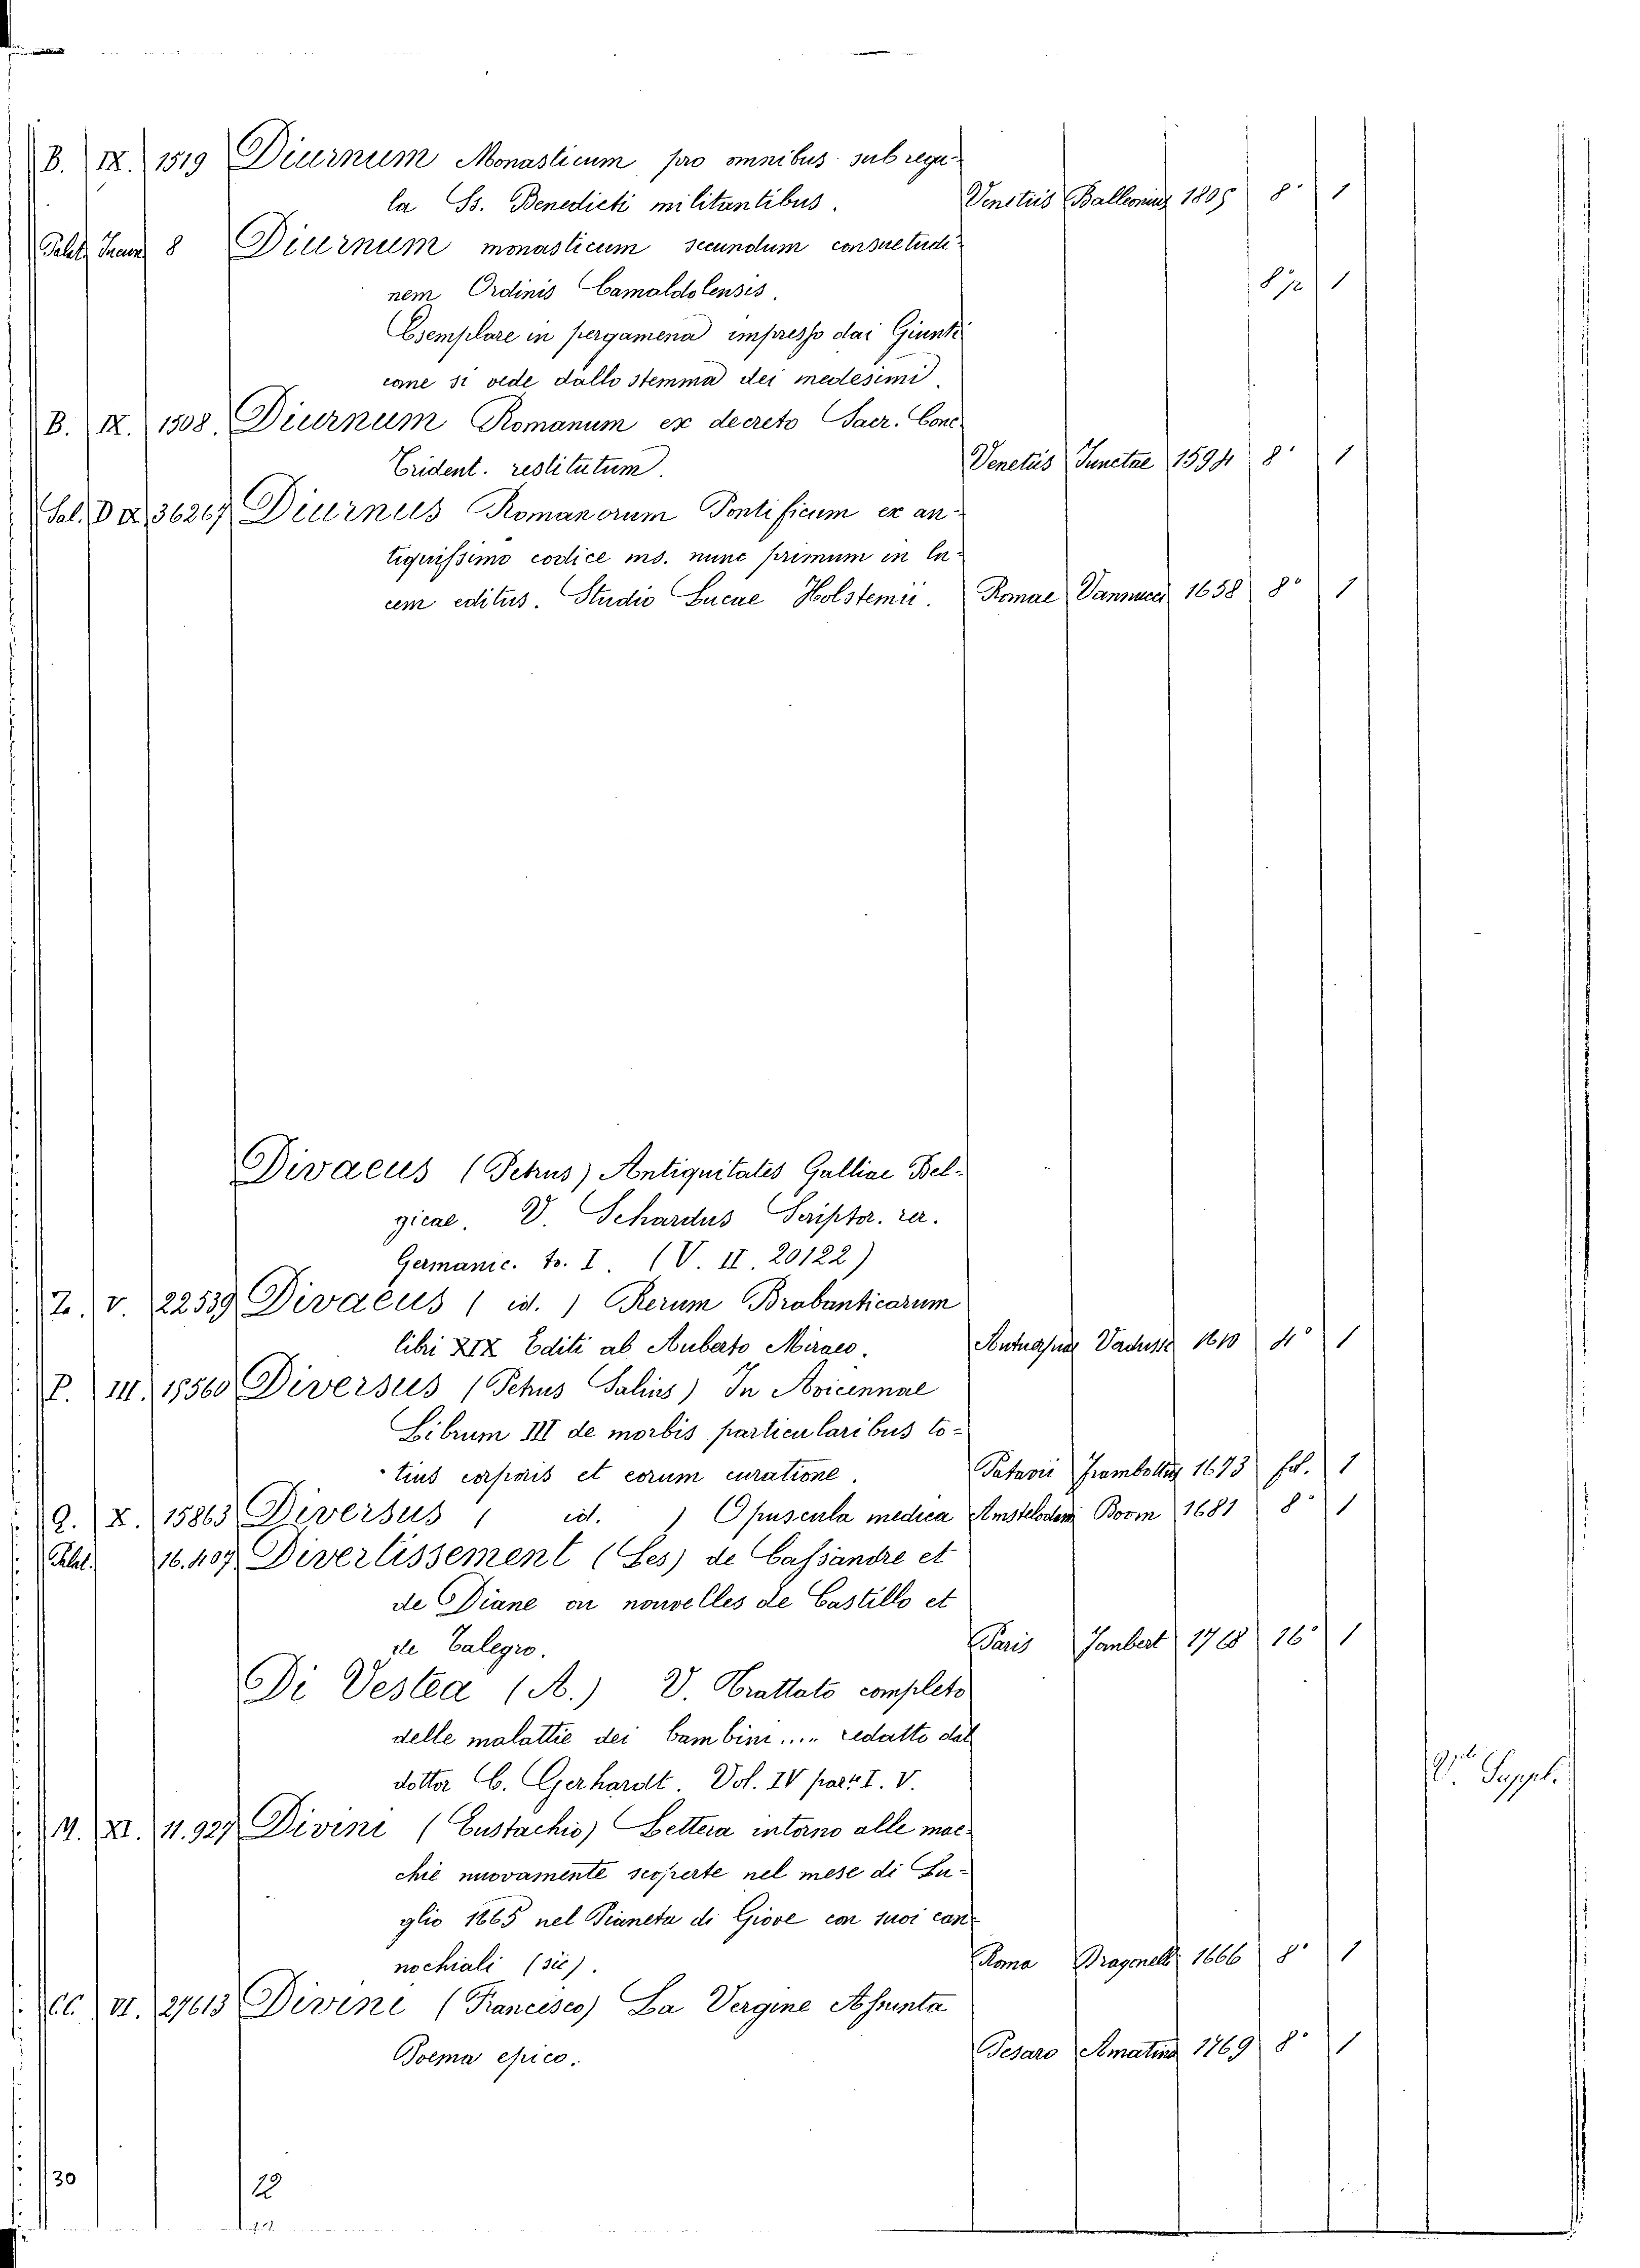 B. IX. 1519 Diurnum Monasticum pro omnibus sub regu-
la Ss. Benedicti militantibus. Venetiis Balleoninis 1805 8° 1
8 Diurnum monasticum secundum consuetudi-
nem Ordinis Camaldolensis. 8° 1
Esemplare in pergamena impresso dai Giunti
come si vede dallo stemma dei medesimi.
B. IX. 1508. Diurnum Romanum ex decreto Sacr. Conc.
Trident. restitutum. Venetiis Junctae 1594 8° 1
Sal. D IX 36267 Diurnus Romanorum Pontificum ex an-
tiquissimo codice ms. nunc primum in lu-
cem editus. Studio Lucae Holstenii. Romae Vannucci 1658 8° 1
Divaeus (Petrus) Antiquitates Galliae Bel-
gicae. V. Schardus Scriptor. rer.
Germanic. to. I. (V. II. 20122)
Z. V. 22539 Divaeus ( id. ) Rerum Brabanticarum
libri XIX Editi ab Auberto Miraeo. Antuerpiae 1610 4° 1
P. III. 15560 Diversus (Petrus Salius) In Avicennae
Librum III de morbis particularibus to-
tius corporis et eorum curatione. Patavii Frambotti 1673 fol. 1
Q. X. 15863 Diversus ( id. ) Opuscula medica Amstelodami Boom 1681 8° 1
Palat. 16.407 Divertissement (Les) de Cassandre et
de Diane ou nouvelles de Castillo et
de Calegro. Paris Jombert 1768 16° 1
Di Vestea (A.) V. Trattato completo
delle malattie dei bambini.... redatto dal
dottor C. Gerhardt. Vol. IV part. I. V. V. Suppl.
M. XI. 11.927 Divini (Eustachio) Lettera intorno alle mac-
chie nuovamente scoperte nel mese di Lu-
glio 1665 nel Pianeta di Giove con suoi can-
nochiali (sic). Roma Dragonelli 1666 8° 1
CC. VI. 27613 Divini (Francesco) La Vergine Assunta
Poema epico. Pesaro Amatina 1769 8° 1
30 12